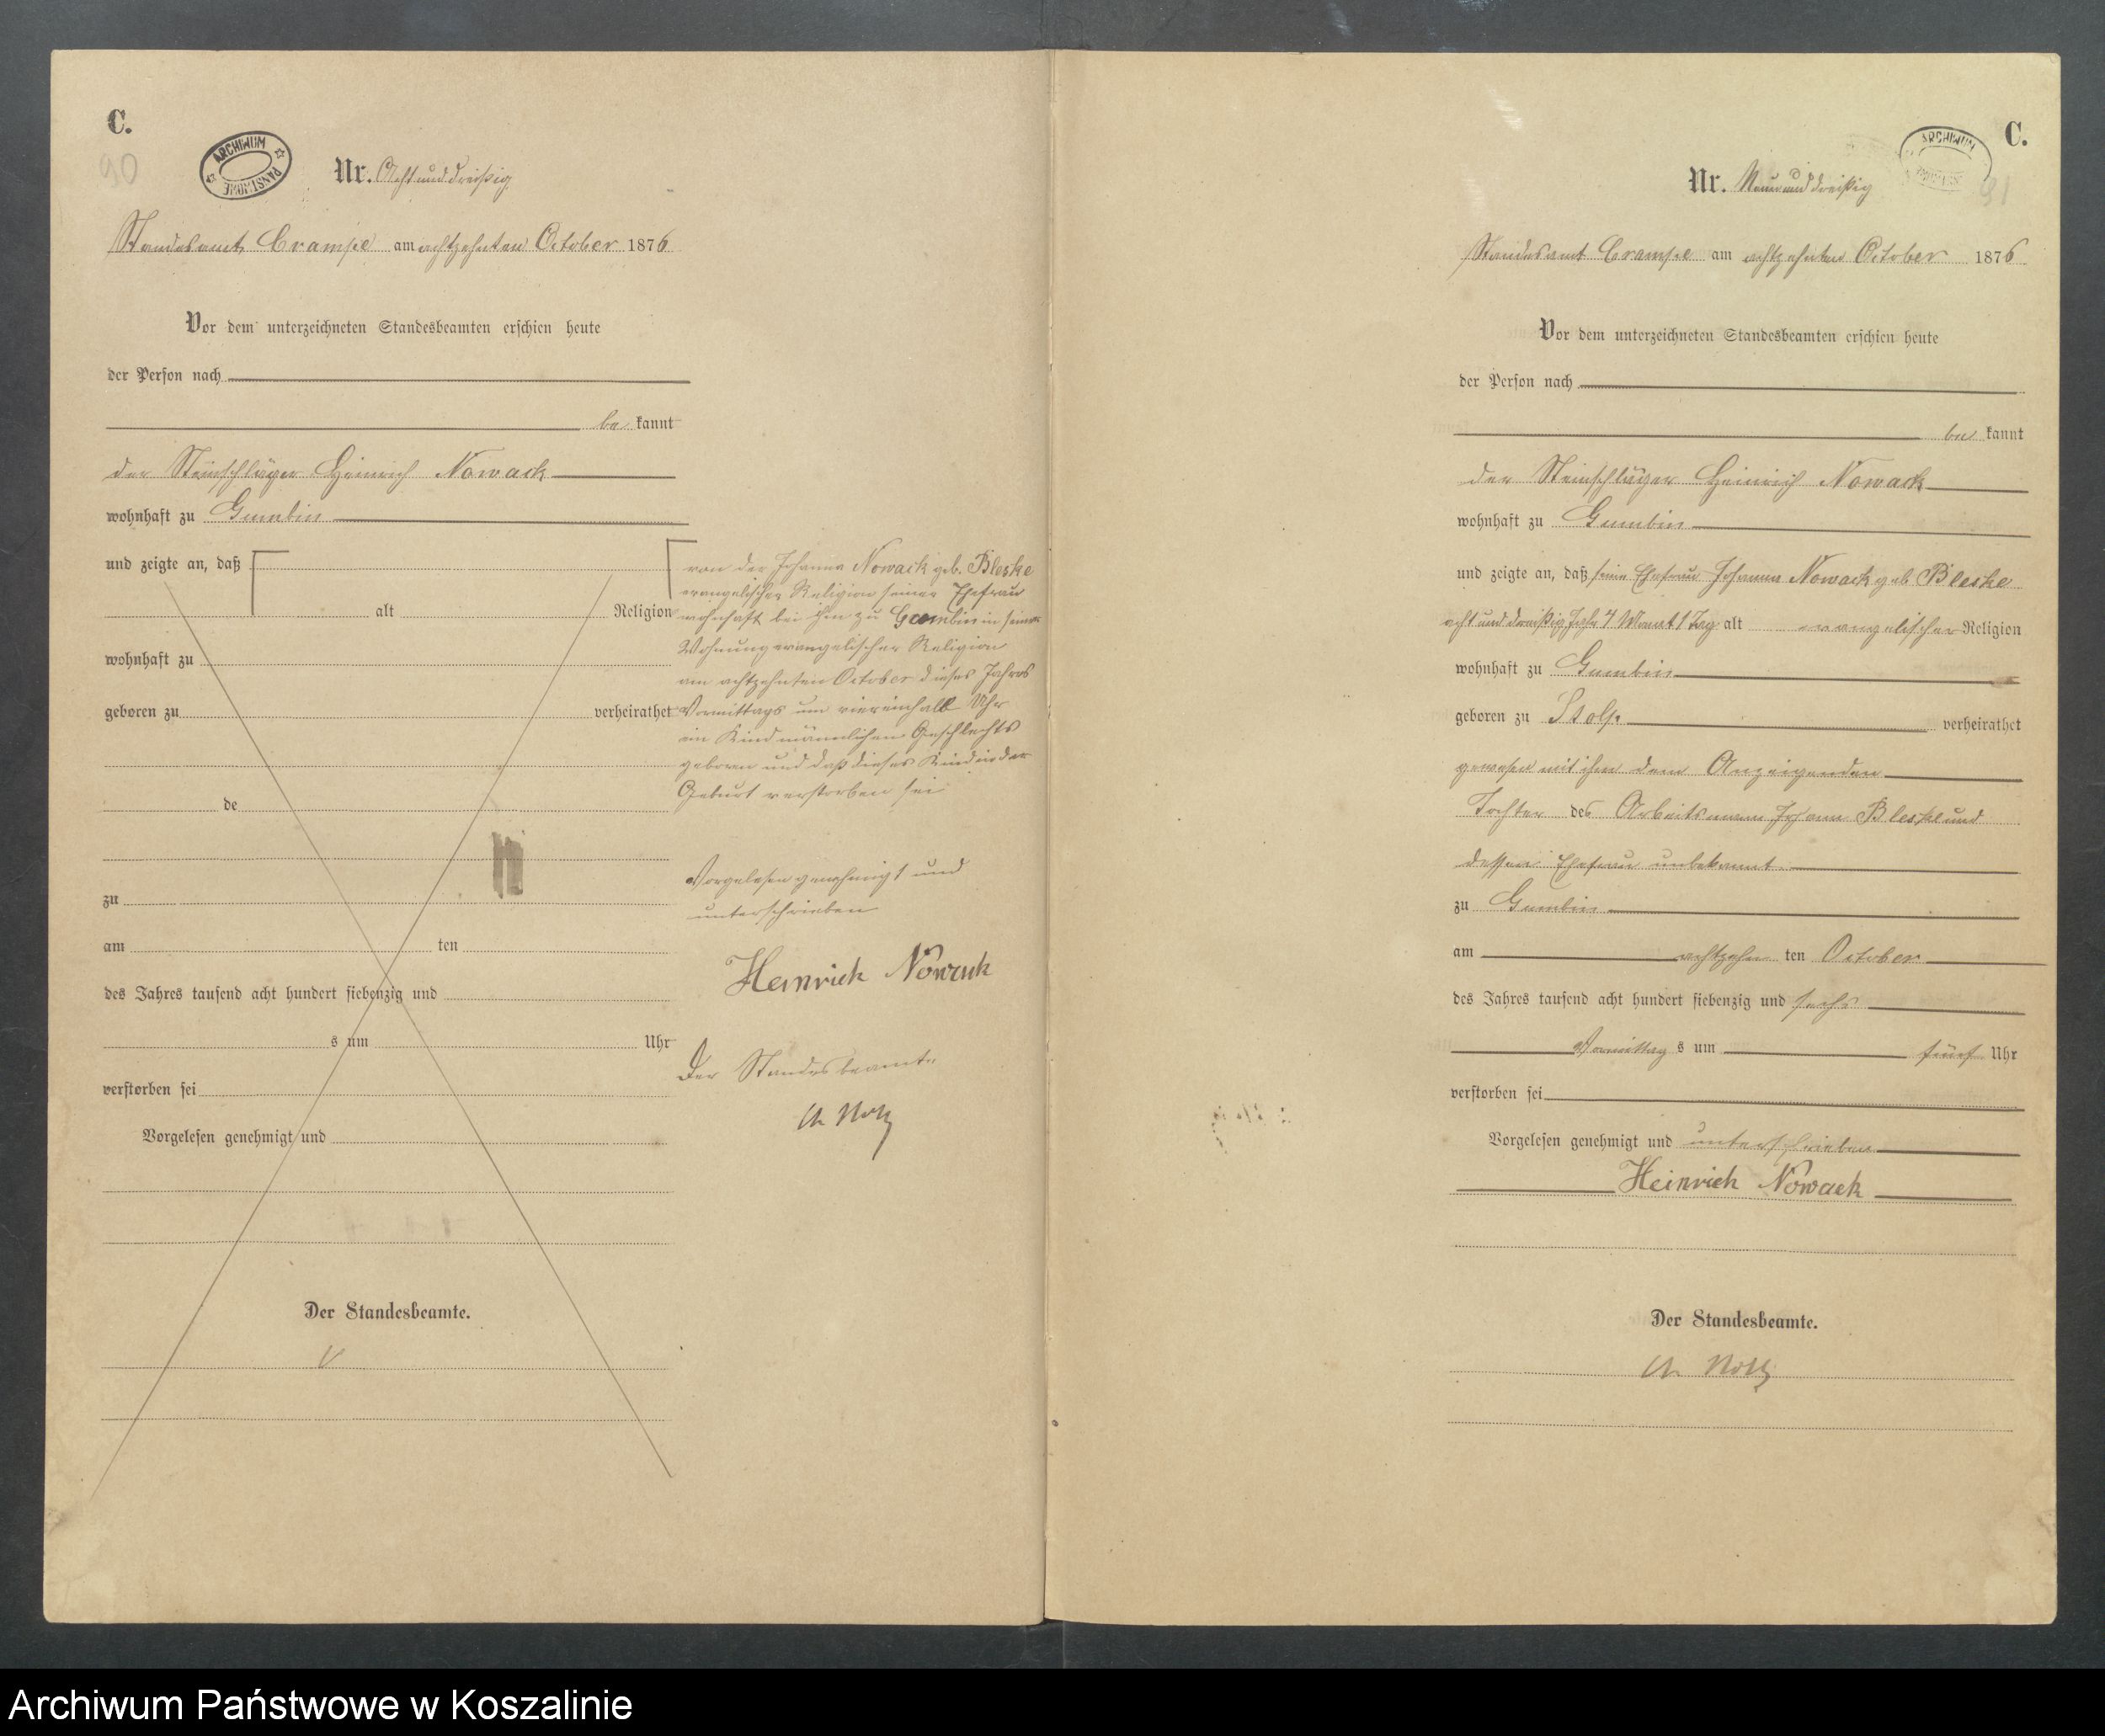 C.
90
ARCHIWUM PAŃSTWOWE
Nr. Acht und dreißig
Standesamt Crampe am achtzehnten October 1876
Vor dem unterzeichneten Standesbeamten erschien heute
der Person nach
be kannt
der Steinschläger Heinrich Nowack
wohnhaft zu Gumbin
und zeigte an, daß
alt Religion
wohnhaft zu
geboren zu verheirathet
de
zu
am ten
des Jahres tausend acht hundert siebenzig und
s um Uhr
verstorben sei
Vorgelesen genehmigt und
Der Standesbeamte.
von der Johanna Nowack geb. Bleske
evangelischer Religion seiner Ehefrau
wohnhaft bei ihm zu Gumbin in seiner
Wohnung evangelischer Religion
am achtzehnten October dieses Jahres
Vormittags um viereinhalb Uhr
ein Kind männlichen Geschlechts
geboren und daß dieses Kind in der
Geburt verstorben sei
Vorgelesen genehmigt und
unterschrieben
Heinrich Nowack
Der Standesbeamte
C.
ARCHIWUM
91
Nr. Neun und dreißig
Standesamt Crampe am achtzehnten October 1876
Vor dem unterzeichneten Standesbeamten erschien heute
der Person nach
be kannt
der Steinschläger Heinrich Nowack
wohnhaft zu Gumbin
und zeigte an, daß seine Ehefrau Johanna Nowack geb Bleske
acht und dreißig Jahr 7 Monat 1 Tag alt evangelischer Religion
wohnhaft zu Gumbin
geboren zu Stolp verheirathet
gewesen mit ihm dem Anzeigenden
Tochter des Arbeitsmann Johann Bleske und
dessen Ehefrau unbekannt
zu Gumbin
am achtzehn ten October
des Jahres tausend acht hundert siebenzig und sechs
Vormittag s um fünf Uhr
verstorben sei
Vorgelesen genehmigt und unterschrieben
Heinrich Nowack
Der Standesbeamte.
Archiwum Państwowe w Koszalinie